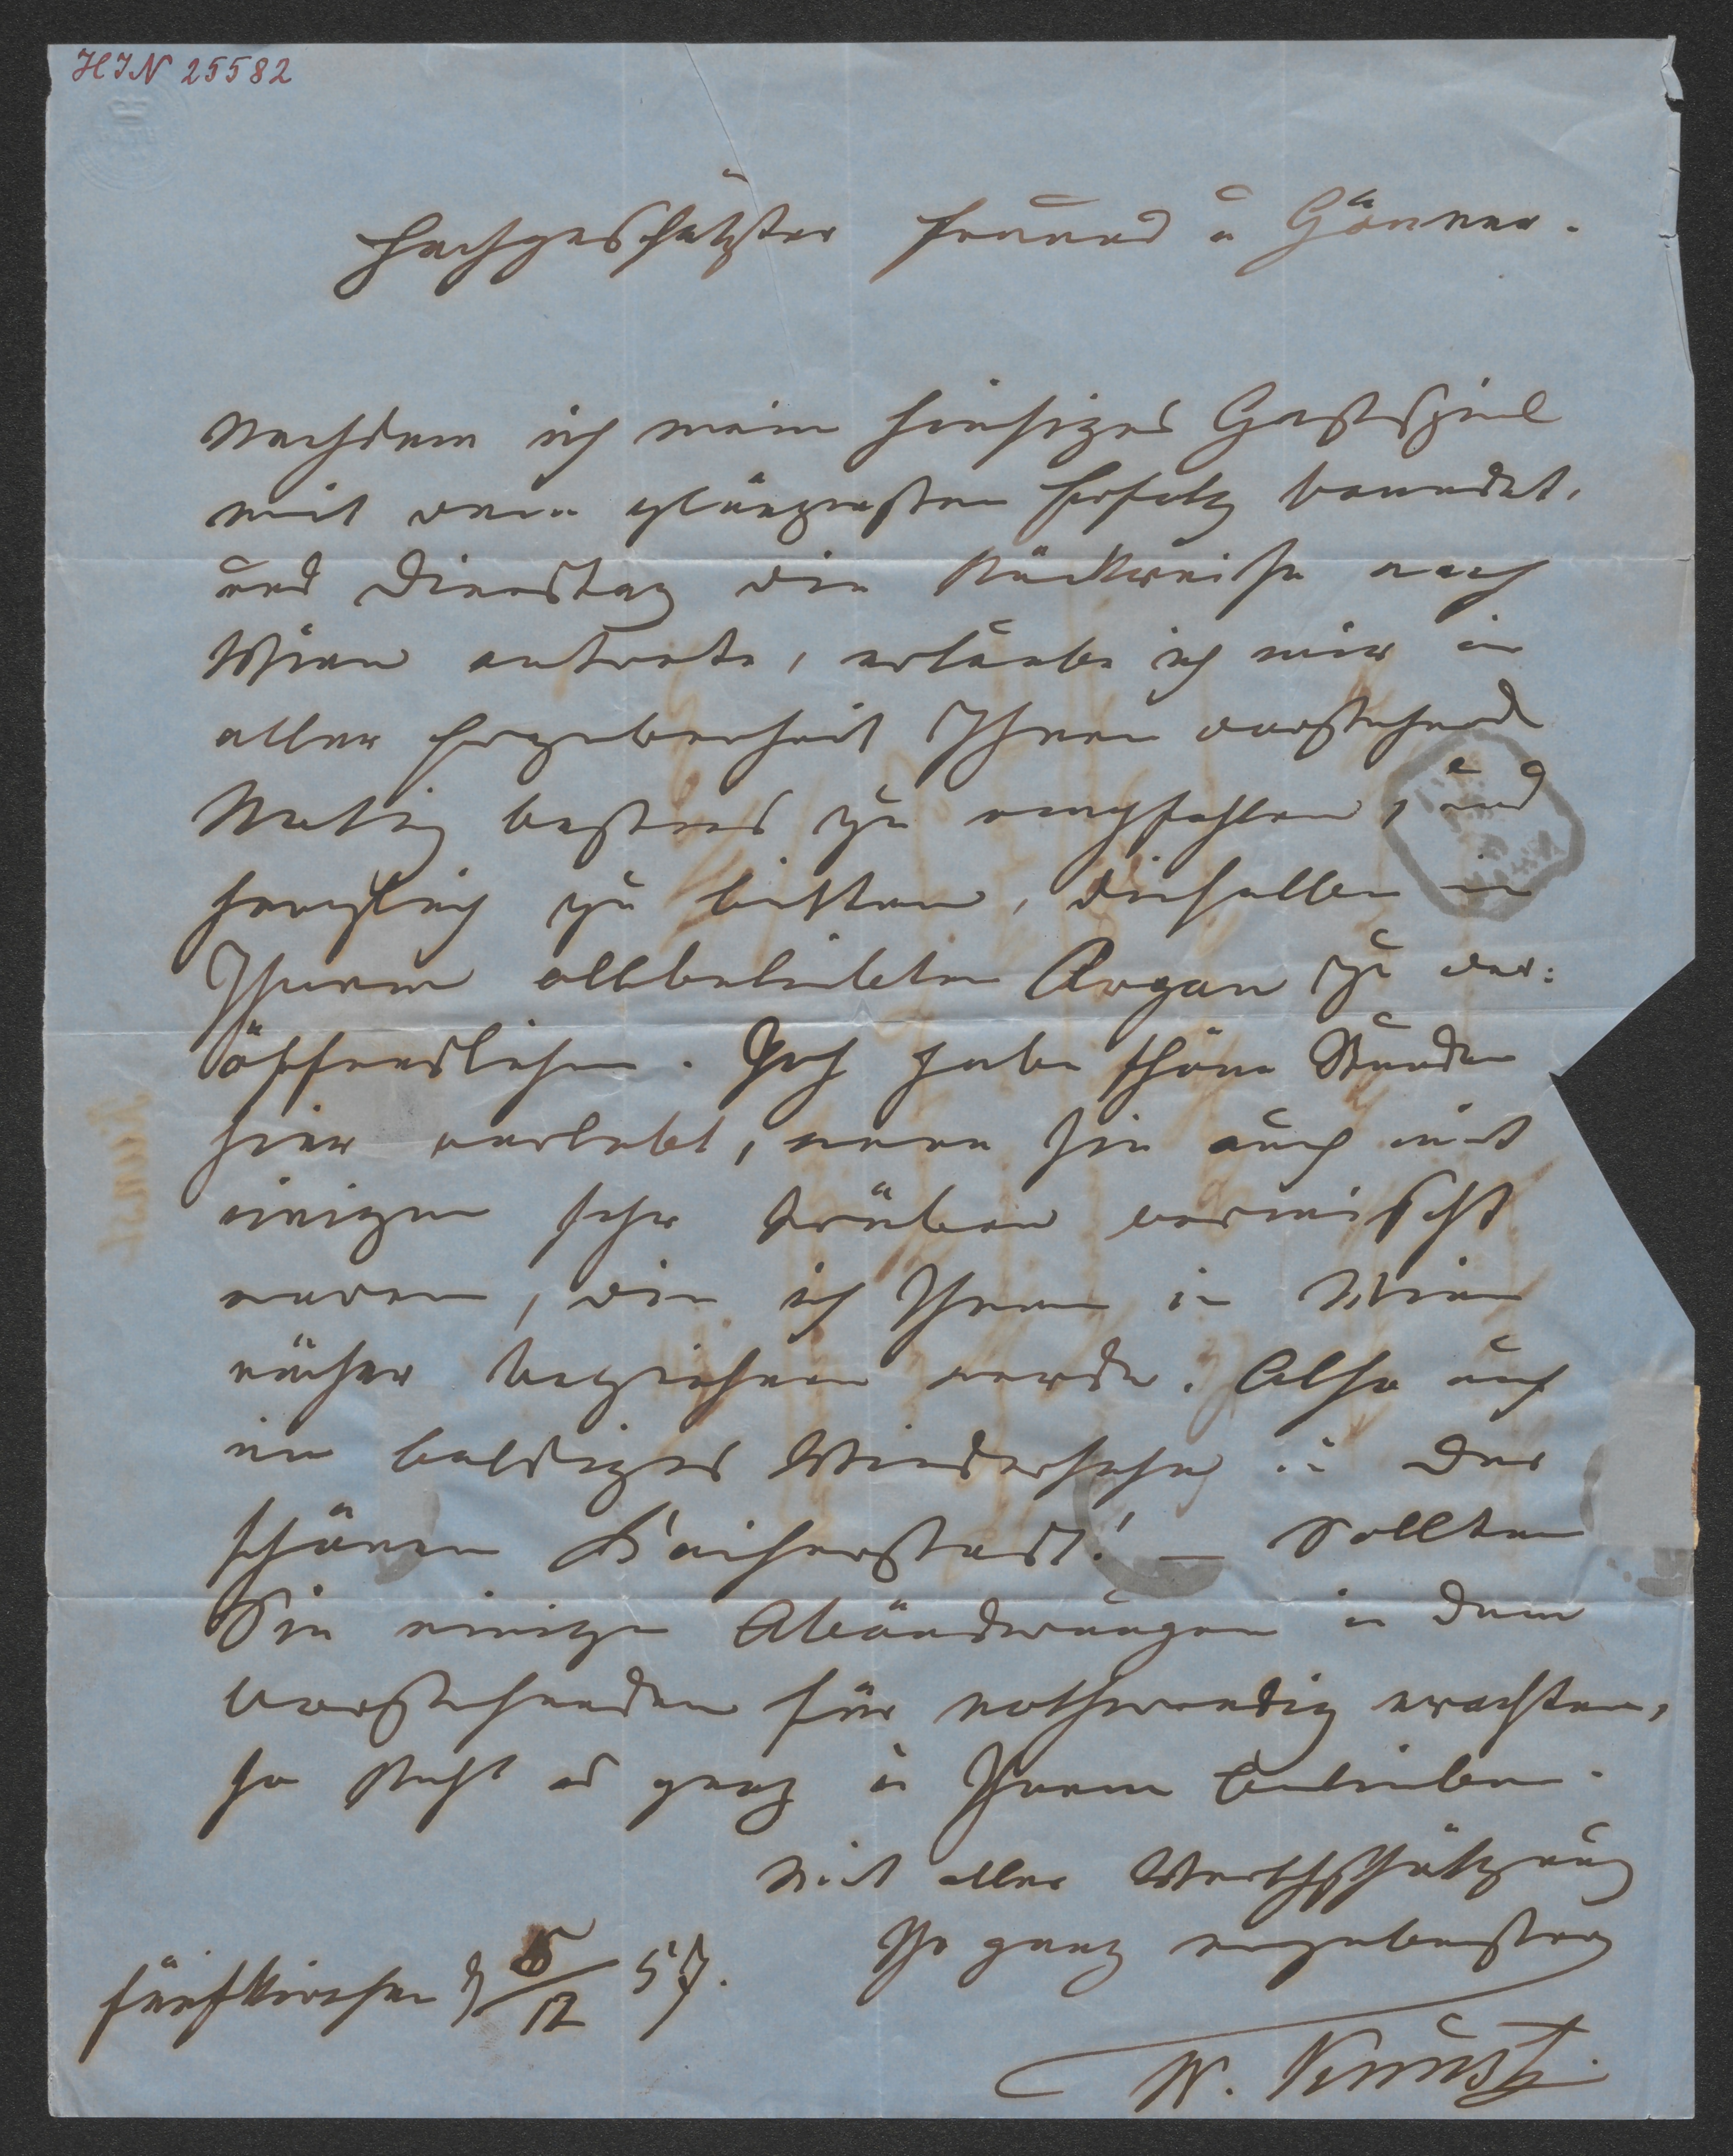 HIN 25582
Hochgeschätzter Freund u Gönner.
Nachdem ich mein hiesiges Gastspiel
mit dem glänzensten Erfolg beendet,
und Dienstag die Rückreise nach
Wien antrete, erlaube ich mir in
aller Ergebenheit Ihnen vorstehende
Notiz bestens zu empfehlen, und
herzlich zu bitten, dieselbe in
Ihrem allbeliebten Organ zu ver:
öffendlichen. Ich habe schöne Stunden
hier verlebt, wenn sie auch mit
einigen sehr trüben vermischt
waren, die ich Ihnen in Wien
näher bezeichnen werde. Also auf
ein baldiges Wiedersehen in der
schönen Kaiserstadt! – Sollten
Sie einige Abänderungen in dem
Vorstehenden für nothwendig erachten,
so steht es ganz in Ihrem Belieben.
Mit aller Werthschätzung
Ihr ganz ergebenster
Fünfkirchen d 5/12 57.
W. Kunst.